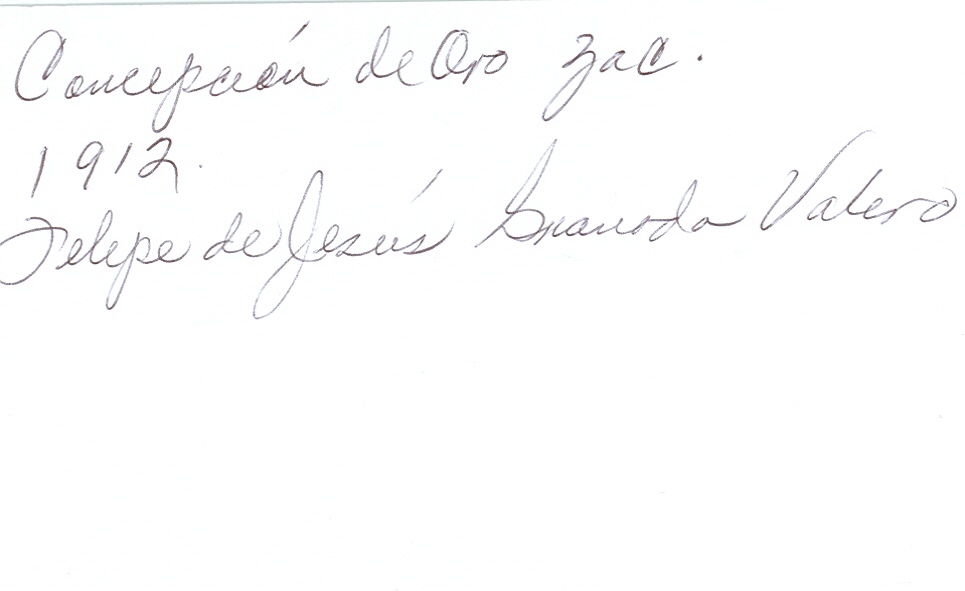 Concepción de Oro Zac.
1912.
Felipe de Jesús Granada Valero